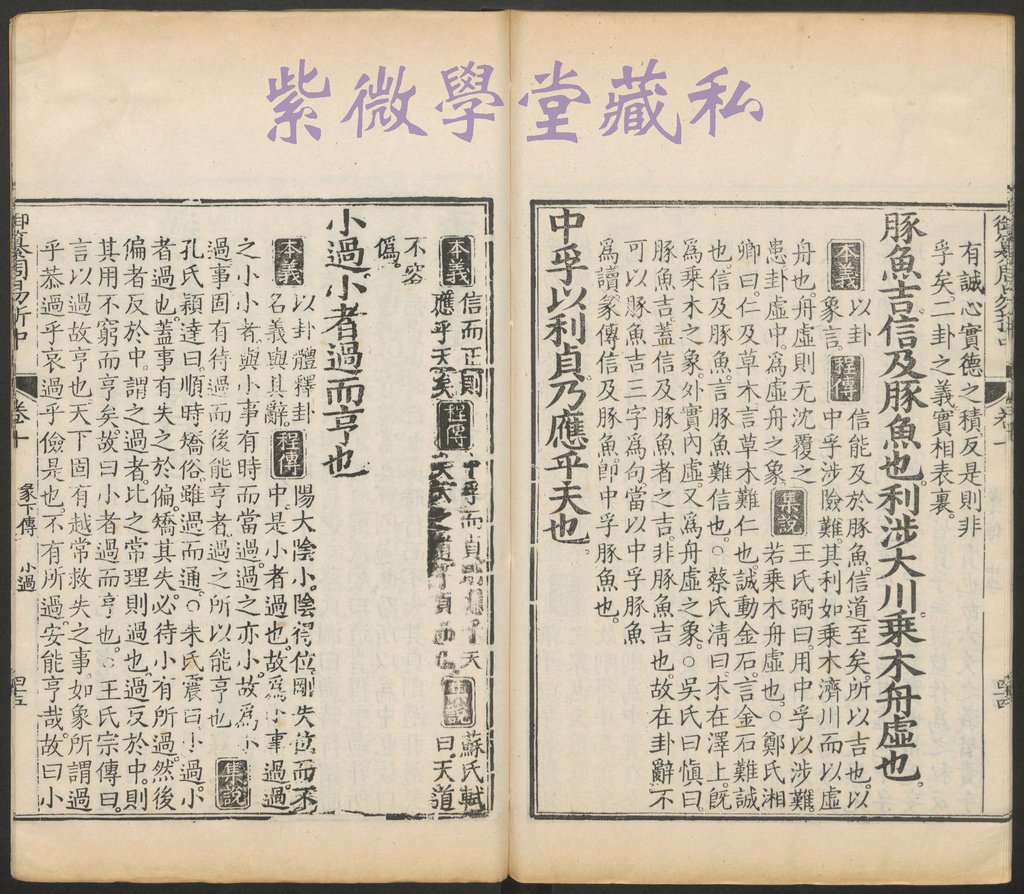 紫微學堂藏私
有誠心實德之積反是則非
孚矣二卦之義實相表裏。
豚魚吉信及豚魚也利涉大川乘木舟虛也。
本義 以卦 程傳 信能及於豚魚信道至矣。所以吉也。以
象言 中孚涉險難其利如乘木濟川而以虛
舟也。舟虛則无沈覆之 集說 王氏弼曰。用中孚以涉難。
患卦虛中。為虛舟之象 若乘木舟虛也。○鄭氏湘
卿曰。仁及草木言草木難仁也。誠動金石。言金石難誠
也。信及豚魚。言豚魚難信也。○蔡氏清曰。木在澤上。旣
為乘木之象。外實內虛又為舟虛之象。○吳氏曰愼曰。
豚魚吉。蓋信及豚魚者之吉。非豚魚吉也。故在卦辭不
可以豚魚吉三字為句當以中孚豚魚
為讀彖傳信及豚魚卽中孚豚魚也。
中孚以利貞乃應乎天也。
本義 信而正則 程傳 中孚而貞則應乎天
應乎天矣 矣天之道孚貞而已 集說 蘇氏軾
曰。天道
不容
僞。
小過。小者過而亨也
本義 以卦體釋卦 程傳 陽大。陰小。陰得位。剛失位。而不
名義與其辭。 中。是小者過也。故為小事過。
之小。小者。與小事有時而當過。過之亦小。故為小
過事固有待過而後能亨者。過之所以能亨也 集說
孔氏穎達曰。順時矯俗。雖過而通。○朱氏震曰。小過。小
者過也。蓋事有失之於偏。矯其失。必待小有所過。然後
偏者反於中。謂之過者。比之常理則過也。過反於中。則
其用不窮而亨矣。故曰小者過而亨也。○王氏宗傳曰。
言以過故亨也天下固有越常救失之事。如象所謂過
乎恭過乎哀過乎儉是也。不有所過。安能亨哉。故曰小
彖下傳 小過